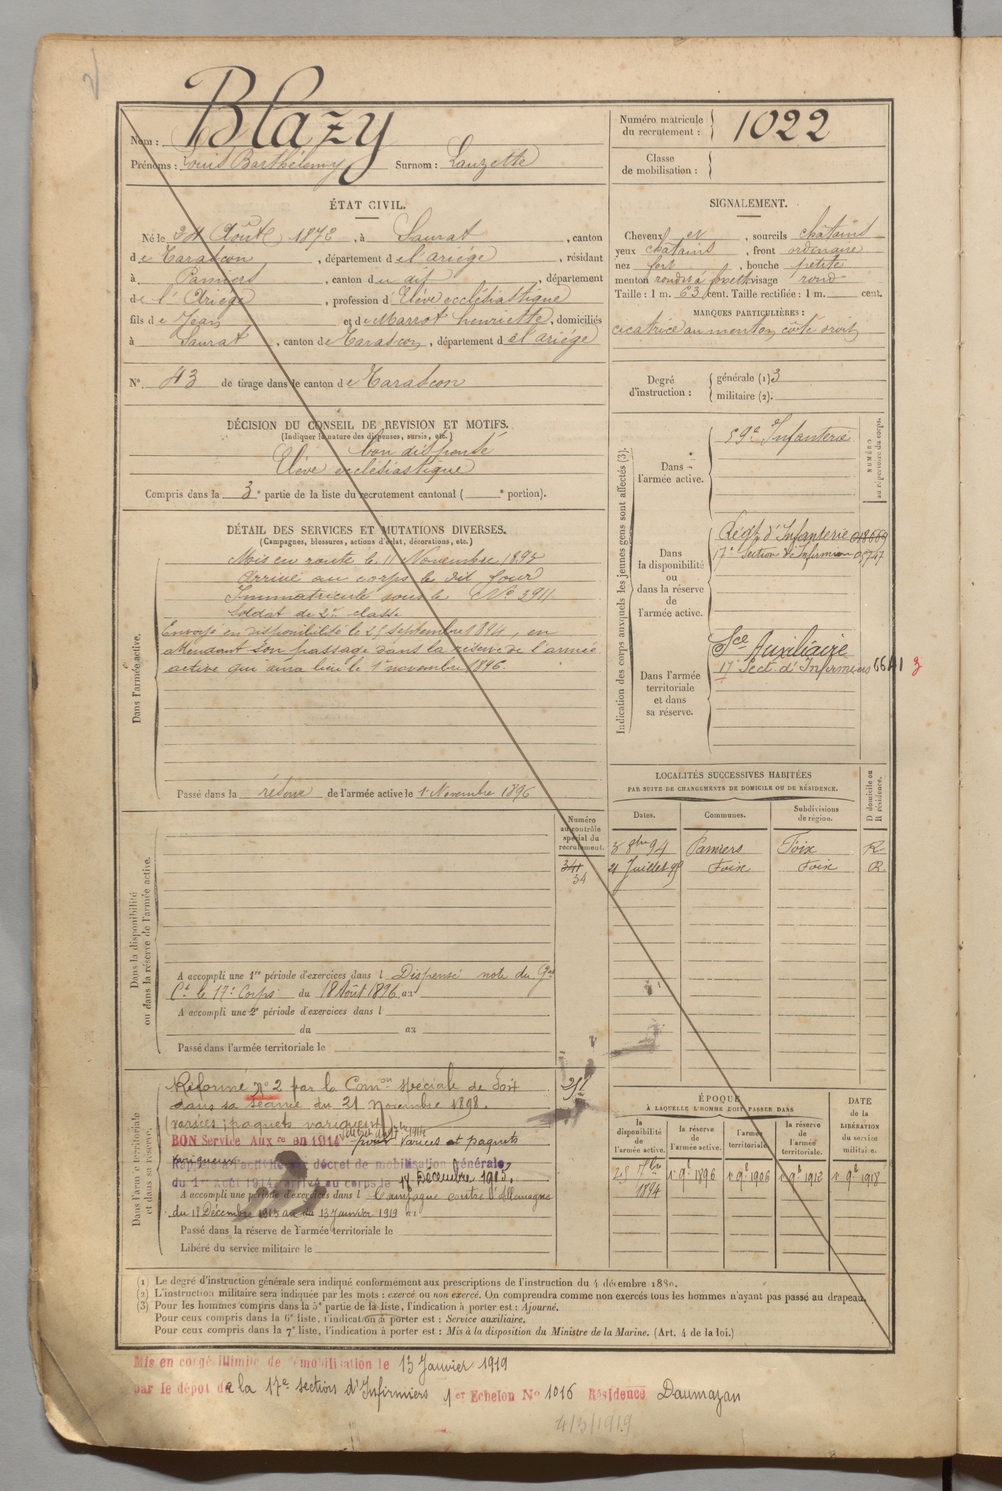 Nom : Blazy
Prénoms : Louis Barthélemy Surnom : Lauzette
Numéro matricule
du recrutement : 1022
Classe
de mobilisation :
ÉTAT CIVIL.
Né le 24 Août 1872, à Saurat, canton
de Tarascon, département de l'ariège, résidant
à Pamiers, canton du dit, département
de l'Ariège, profession d'Elève ecclésiastique
fils de Jean et de Marrot henriette, domiciliés
à Saurat, canton de Tarascon, département de l'ariège
N°. 43 de tirage dans le canton de Tarascon
SIGNALEMENT.
Cheveux et, sourcils châtains
yeux châtains, front ordinaire
nez fort, bouche petite
menton rond à fossette visage rond
Taille : 1 m. 63 cent. Taille rectifiée : 1 m. cent.
MARQUES PARTICULIÈRES :
cicatrice au menton côté droit
Degré
d'instruction :
générale (1) 3
militaire (2).
DÉCISION DU CONSEIL DE REVISION ET MOTIFS.
(Indiquer la nature des dispenses, sursis, etc.)
bon dispensé
Elève ecclésiastique
Compris dans la 3e partie de la liste du recrutement cantonal ( e portion).
DÉTAIL DES SERVICES ET MUTATIONS DIVERSES.
(Campagnes, blessures, actions d'éclat, décorations, etc.)
Dans l'armée active.
Mis en route le 11 Novembre 1893
Arrivé au corps le dit jour
Immatriculé sous le N° 2911
Soldat de 2e classe
Envoyé en disponibilité le 25 septembre 1894, en
attendant son passage dans la réserve de l'armée
active qui aura lieu le 1er novembre 1896.
Passé dans la réserve de l'armée active le 1 Novembre 1896
Indication des corps auxquels les jeunes gens sont affectés (3).
NUMÉRO
au répertoire du corps.
Dans
l'armée active.
59e Infanterie
Dans
la disponibilité
ou
dans la réserve
de
l'armée active.
Régt d'Infanterie
17e Section de Infirmiers
Dans l'armée
territoriale
et dans
sa réserve.
Sce Auxiliaire
17e Sect. d'Infirmiers
LOCALITÉS SUCCESSIVES HABITÉES
PAR SUITE DE CHANGEMENTS DE DOMICILE OU DE RÉSIDENCE.
Dates. Communes. Subdivisions
de région. D domicile ou
R résidence.
3 8bre 94 Pamiers Foix R
21 Juillet 95 Foix Foix R
Numéro
au contrôle
spécial du
recrutement.
341
34
Dans la disponibilité
ou dans la réserve de l'armée active.
A accompli une 1re période d'exercices dans l Dispensé note du Gal
Ct le 17e Corps du 18 Août 1896 au
A accompli une 2e période d'exercices dans l
du au
Passé dans l'armée territoriale le
Dans l'armée territoriale
et dans sa réserve.
Réformé n° 2 par la Comon spéciale de Foix
dans sa séance du 21 Novembre 1898.
(varices; paquets variqueux)
BON Service Aux re en 1914 pour varices et paquets
variqueux
Rappelé à l'activité par décret de mobilisation générale
du 1er Août 1914, arrivé au corps le 18 Décembre 1915.
A accompli une période d'exercices dans l Campagne contre l'Allemagne
du 18 Décembre 1915 au 13 Janvier 1919
Passé dans la réserve de l'armée territoriale le
Libéré du service militaire le
ÉPOQUE
À LAQUELLE L'HOMME DOIT PASSER DANS
la
disponibilité
de
l'armée active. la réserve
de
l'armée active. l'armée
territoriale. la réserve
de
l'armée
territoriale. DATE
de la
LIBÉRATION
du service
militaire.
25 7bre
1894 1er 9bre 1896 1er 9bre 1906 1er 9bre 1912 1er 9bre 1918
(1) Le degré d'instruction générale sera indiqué conformément aux prescriptions de l'instruction du 4 décembre 1889.
(2) L'instruction militaire sera indiquée par les mots : exercé ou non exercé. On comprendra comme non exercés tous les hommes n'ayant pas passé au drapeau.
(3) Pour les hommes compris dans la 5e partie de la liste, l'indication à porter est : Ajourné.
Pour ceux compris dans la 6e liste, l'indication à porter est : Service auxiliaire.
Pour ceux compris dans la 7e liste, l'indication à porter est : Mis à la disposition du Ministre de la Marine. (Art. 4 de la loi.)
Mis en congé illimité de démobilisation le 13 Janvier 1919
par le dépôt de la 17e section d'Infirmiers 1er Echelon N° 1016 Résidence Daumazan
4/3/1919